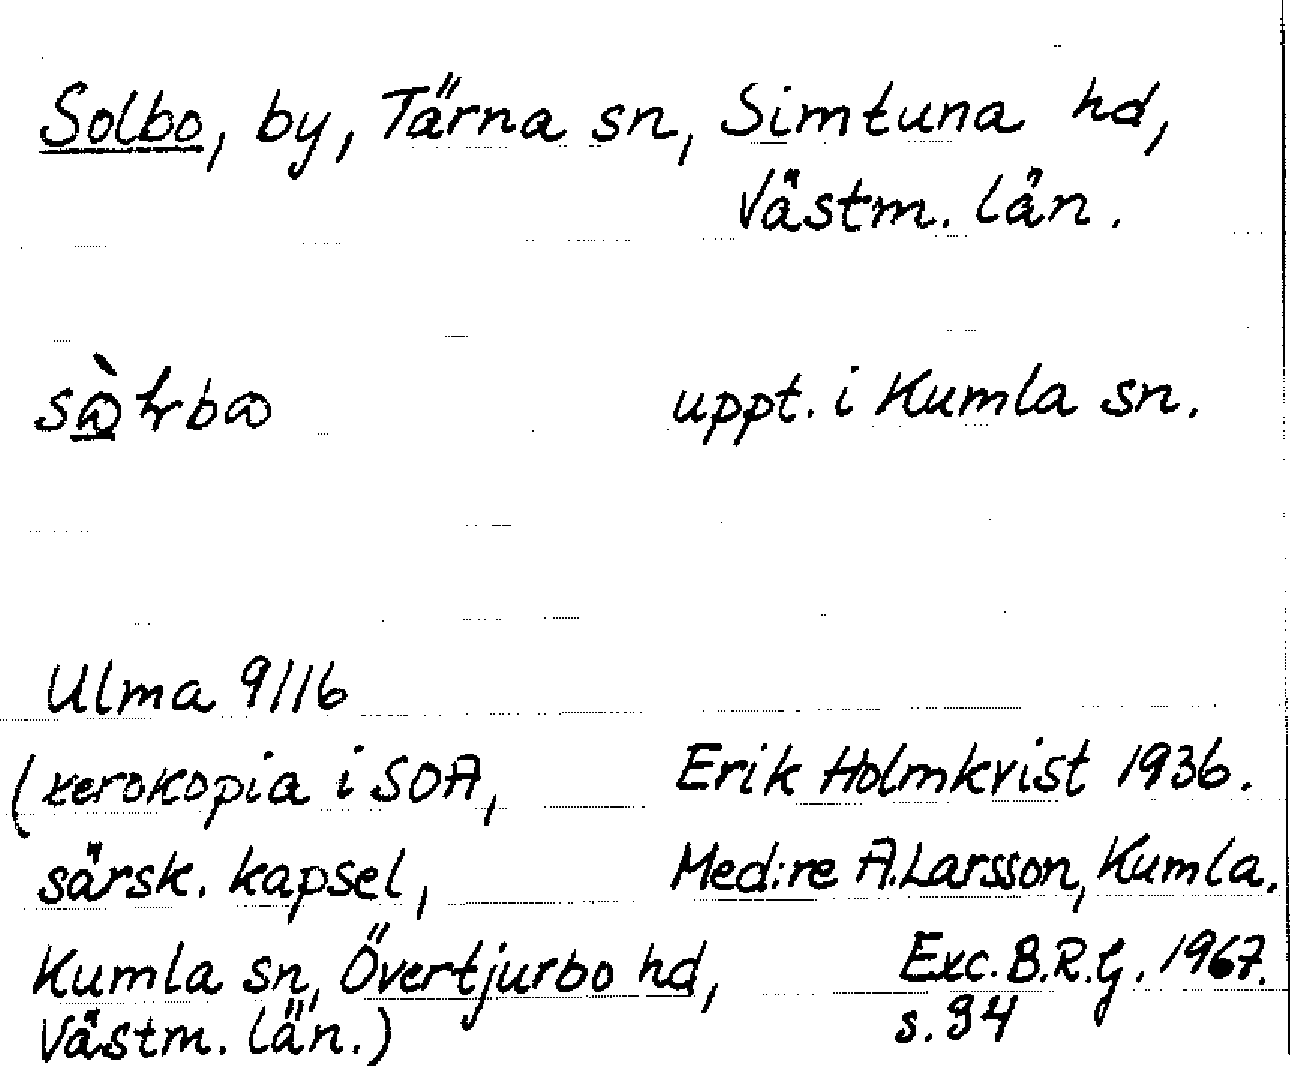 Solbo, by, Tärna sn, Simtuna hd,
Västm. län.
uppt. i Kumla sn.
Ulma 9116
(xerokopia i SOA,
Erik Holmkvist 1936.
särsk. kapsel,
Med:re A.Larsson, Kumla.
Kumla sn, Övertjurbo hd,
Exc. B.R.G. 1967.
Västm. län.)
s. 94